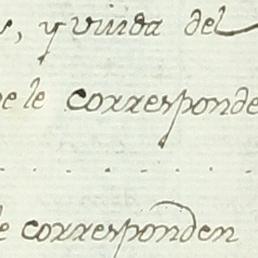 s, y viuda del
e le corresponde
. . . . . . . .
le corresponden